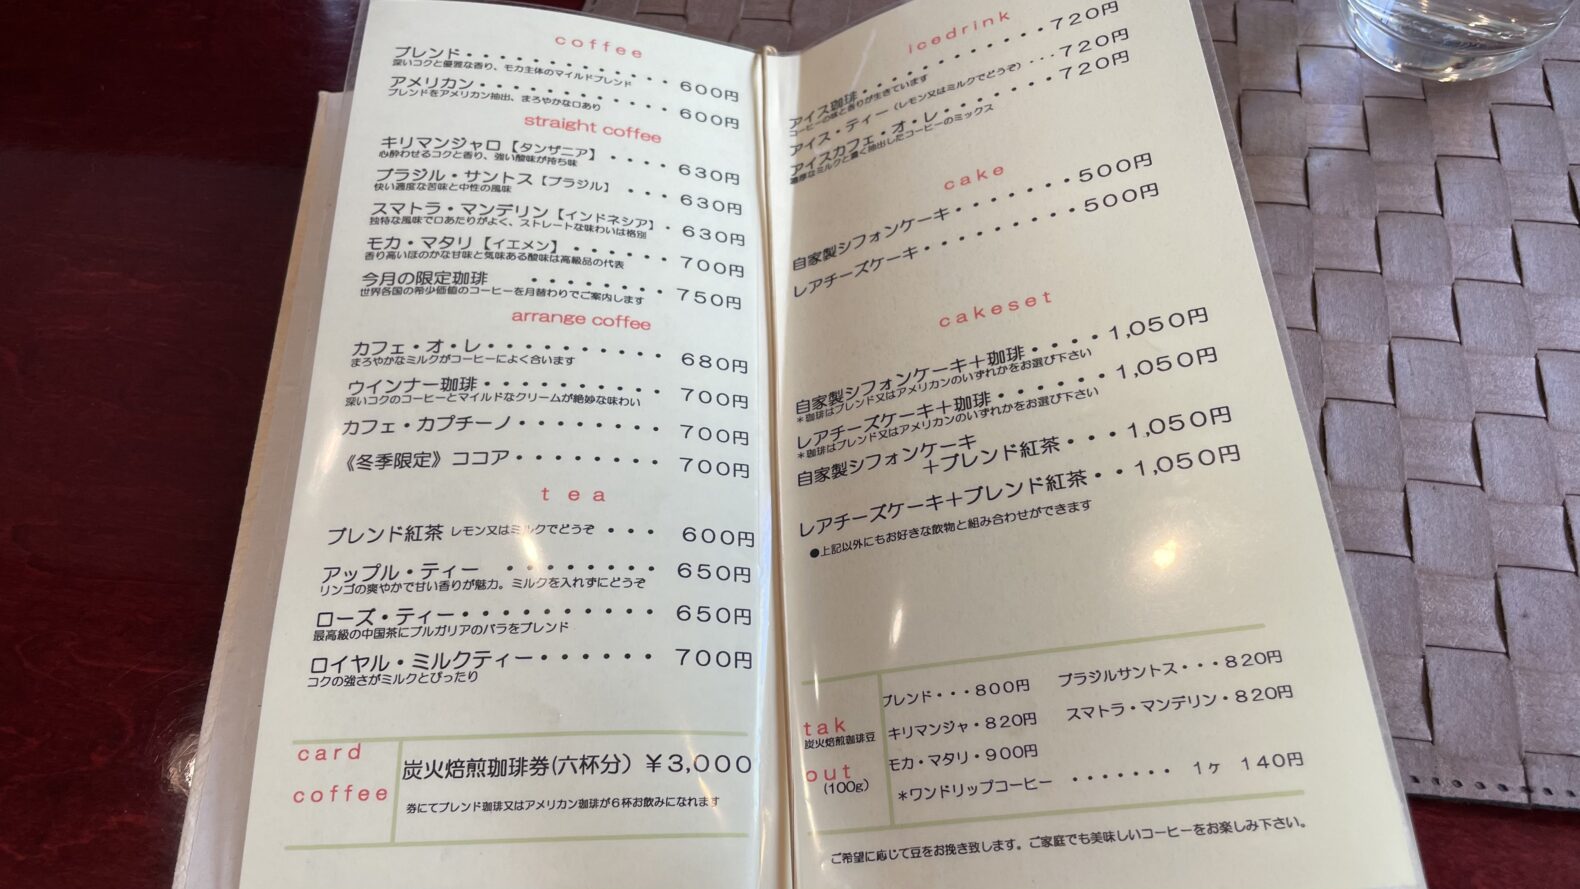 coffee
ブレンド・・・・・・・・・・・・600円
深いコクと優雅な香り、モカ主体のマイルドブレンド
アメリカン・・・・・・・・・・・600円
ブレンドをアメリカン抽出、まろやかな口あり
straight coffee
キリマンジャロ【タンザニア】・・・・630円
心酔わせるコクと香り、強い酸味が持ち味
ブラジル・サントス【ブラジル】・・・630円
快い適度な苦味と中性の風味
スマトラ・マンデリン【インドネシア】・630円
独特な風味で口あたりがよく、ストレートな味わいは格別
モカ・マタリ【イエメン】・・・・・700円
香り高いほのかな甘味と気味ある酸味は高級品の代表
今月の限定珈琲 ・・・・・・・750円
世界各国の希少価値のコーヒーを月替わりでご案内します
arrange coffee
カフェ・オ・レ・・・・・・・・・・680円
まろやかなミルクがコーヒーによく合います
ウインナー珈琲・・・・・・・・・・700円
深いコクのコーヒーとマイルドなクリームが絶妙な味わい
カフェ・カプチーノ・・・・・・・・700円
《冬季限定》ココア・・・・・・・・700円
tea
ブレンド紅茶 レモン又はミルクでどうぞ ・・・ 600円
アップル・ティー ・・・・・・・・650円
リンゴの爽やかで甘い香りが魅力。ミルクを入れずにどうぞ
ローズ・ティー・・・・・・・・・・650円
最高級の中国茶にブルガリアのバラをブレンド
ロイヤル・ミルクティー・・・・・・700円
コクの強さがミルクとぴったり
card
coffee
炭火焙煎珈琲券(六杯分)￥3,000
券にてブレンド珈琲又はアメリカン珈琲が6杯お飲みになれます
icedrink
アイス珈琲・・・・・・・・・・・・720円
コーヒーの味と香りが生きています
アイス・ティー（レモン又はミルクでどうぞ）・・・720円
アイスカフェ・オ・レ・・・・・・・720円
濃厚なミルクと濃く抽出したコーヒーのミックス
cake
自家製シフォンケーキ・・・・・・・500円
レアチーズケーキ・・・・・・・・・500円
cakeset
自家製シフォンケーキ＋珈琲・・・・1,050円
＊珈琲はブレンド又はアメリカンのいずれかをお選び下さい
レアチーズケーキ＋珈琲・・・・・・1,050円
＊珈琲はブレンド又はアメリカンのいずれかをお選び下さい
自家製シフォンケーキ
＋ブレンド紅茶・・・1,050円
レアチーズケーキ＋ブレンド紅茶・・1,050円
●上記以外にもお好きな飲物と組み合わせができます
tak
炭火焙煎珈琲豆
out
(100g)
ブレンド・・・800円 ブラジルサントス・・・820円
キリマンジャ・820円 スマトラ・マンデリン・820円
モカ・マタリ・900円
＊ワンドリップコーヒー ・・・・・・・ 1ヶ 140円
ご希望に応じて豆をお挽き致します。ご家庭でも美味しいコーヒーをお楽しみ下さい。